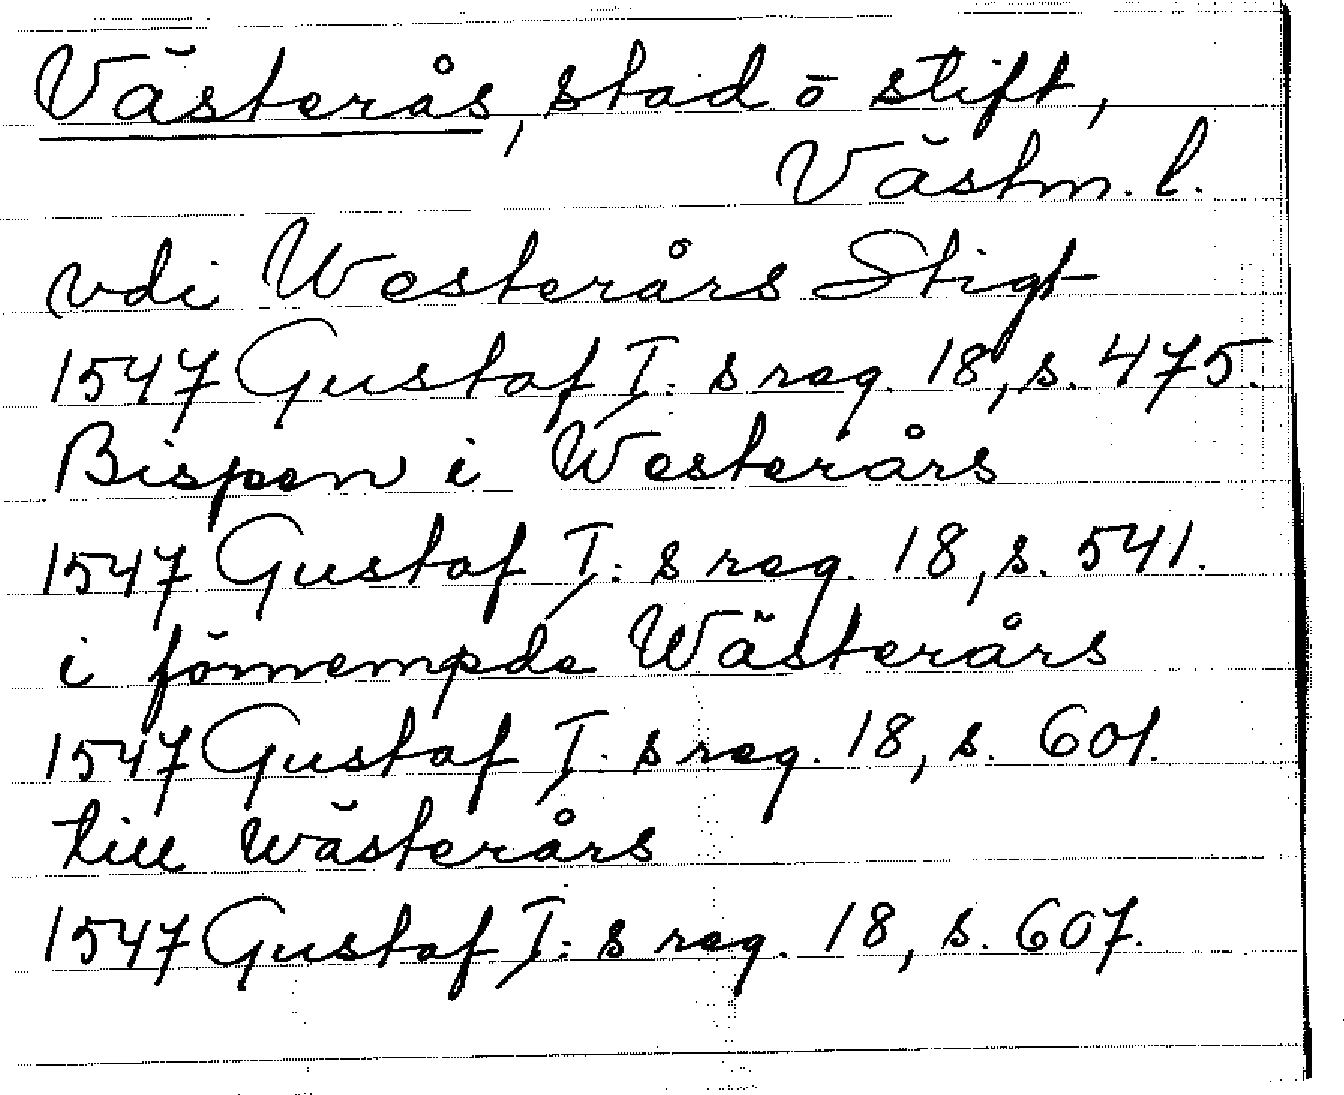 Västerås, stad o stift,
Västm. l.
vdi Westerårs Stigt
1547 Gustaf I:s reg. 18, s. 475.
Bispen i Westerårs
1547 Gustaf I:s reg. 18, s. 541.
i förnempde Wästerårs
1547 Gustaf I:s reg. 18, s. 601.
till wästerårs
1547 Gustaf I:s reg. 18, s. 607.